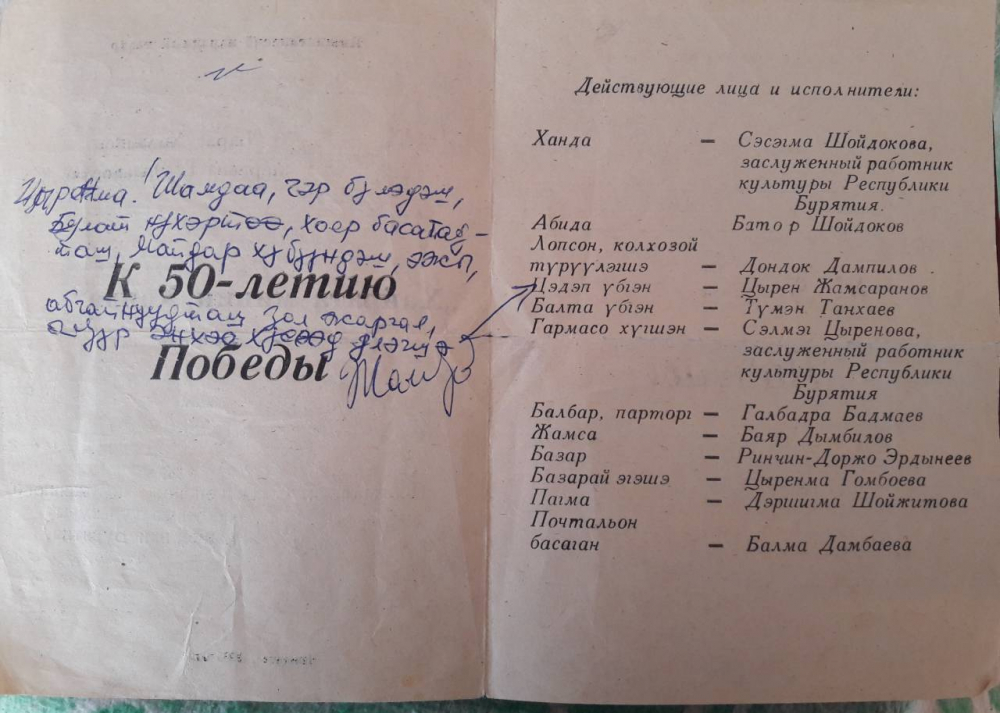 Цырегма! Шамдаа, гэр бүлэдэш,
нүхэртөө, хоёр басагад-
таш, Майдар хүбүүндэш, эжы,
К 50-летию
абгайнуудташ зол жаргал,
элүүр энхээ хүсөөд үлэгшэ
Победы
Действующие лица и исполнители:
Ханда — Сэсэгма Шойдокова,
заслуженный работник
культуры Республики
Бурятия.
Абида Батор Шойдоков
Лопсон, колхозой
түрүүлэгшэ — Дондок Дампилов.
Цэдэп үбгэн — Цырен Жамсаранов
Балта үбгэн — Түмэн Танхаев
Гармасо хүгшэн — Сэлмэг Цыренова,
заслуженный работник
культуры Республики
Бурятия
Балбар, парторг — Галбадра Бадмаев
Жамса — Баяр Дымбилов
Базар — Ринчин-Доржо Эрдынеев
Базарай эгэшэ — Цыренма Гомбоева
Пагма — Дэршигма Шойжитова
Почтальон
басаган — Балма Дамбаева